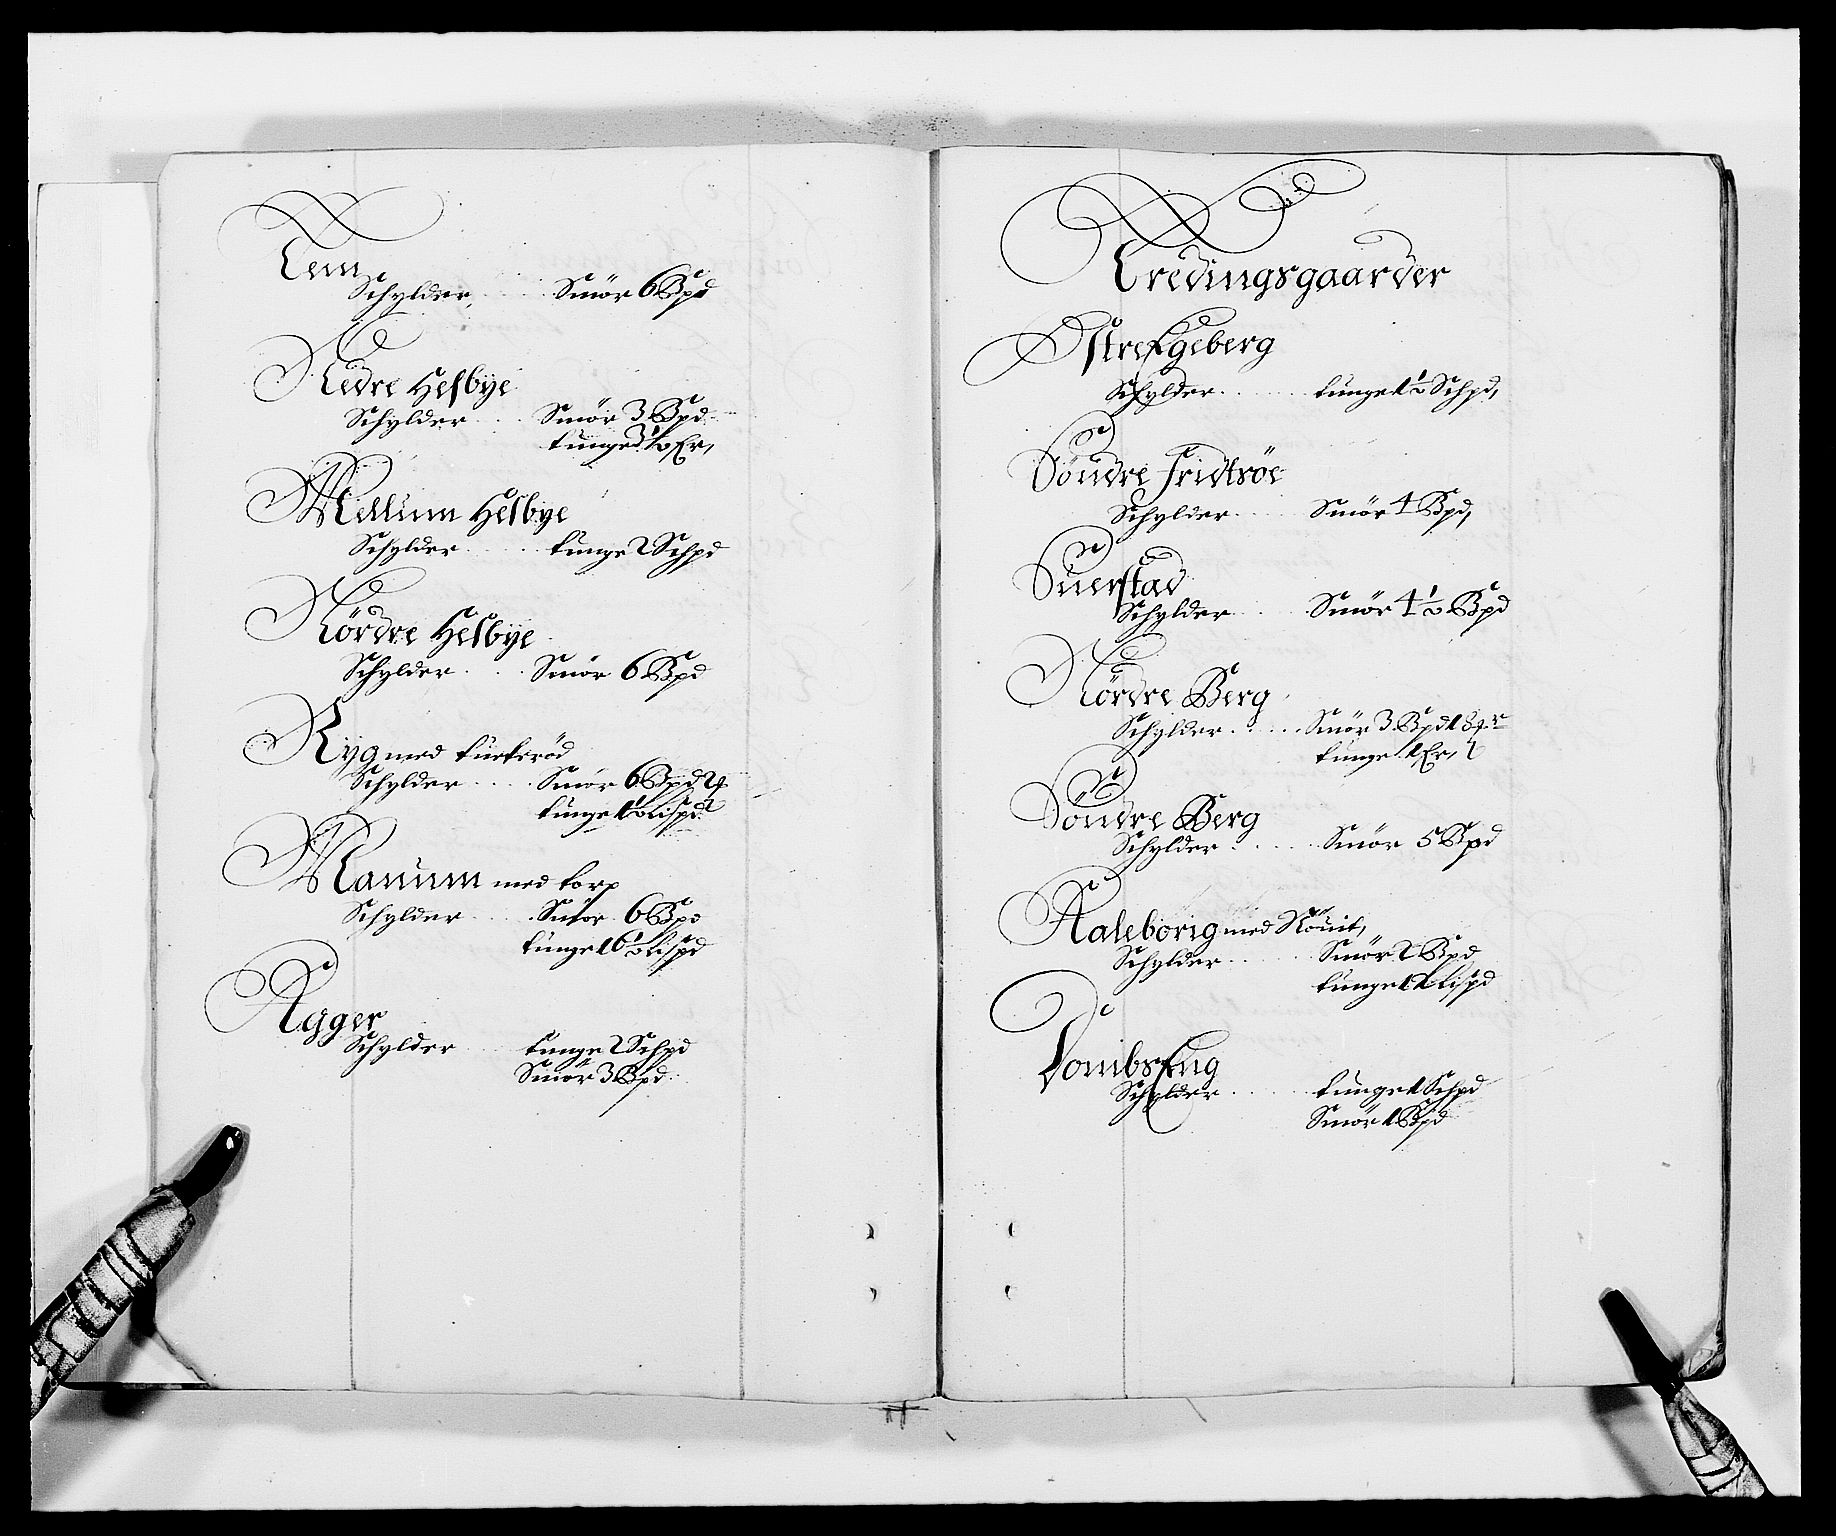 Tem
Schylder. Smör 6 Bpd
Nedre Hesbÿe
Schylder Smör 3 Bpd
tunge 3½
Mellum Hesbÿe
Schylder tunge 2 Schpd
Nördre Hesbÿe
Schylder Smör 6 Bpd
Ryg med
Schylder Smör 6 Bpd
tunge Lispd
Manum med torp
Schylder Smör 6 Bpd
tunge 16½ Lispd
Agger
Schylder tunge 2 Schpd
Smör 3 Bpd
Tredingsgaarder
Östre Egeberg
Schylder tunge 1½ Schpd,
Söndre Fridtsöe
Schylder Smör 4 Bpd,
Suerstad
Schylder Smör 4½ Bpd
Nördre Berg
Schylder Smör 3 Bpd
tunge 1
Söndre Berg
Schylder Smör 5 Bpd
Aaleborig med
Schylder Smör 2 Bpd
tunge Lispd
Schylder tunge 1 Schpd
Smör 1 Bpd